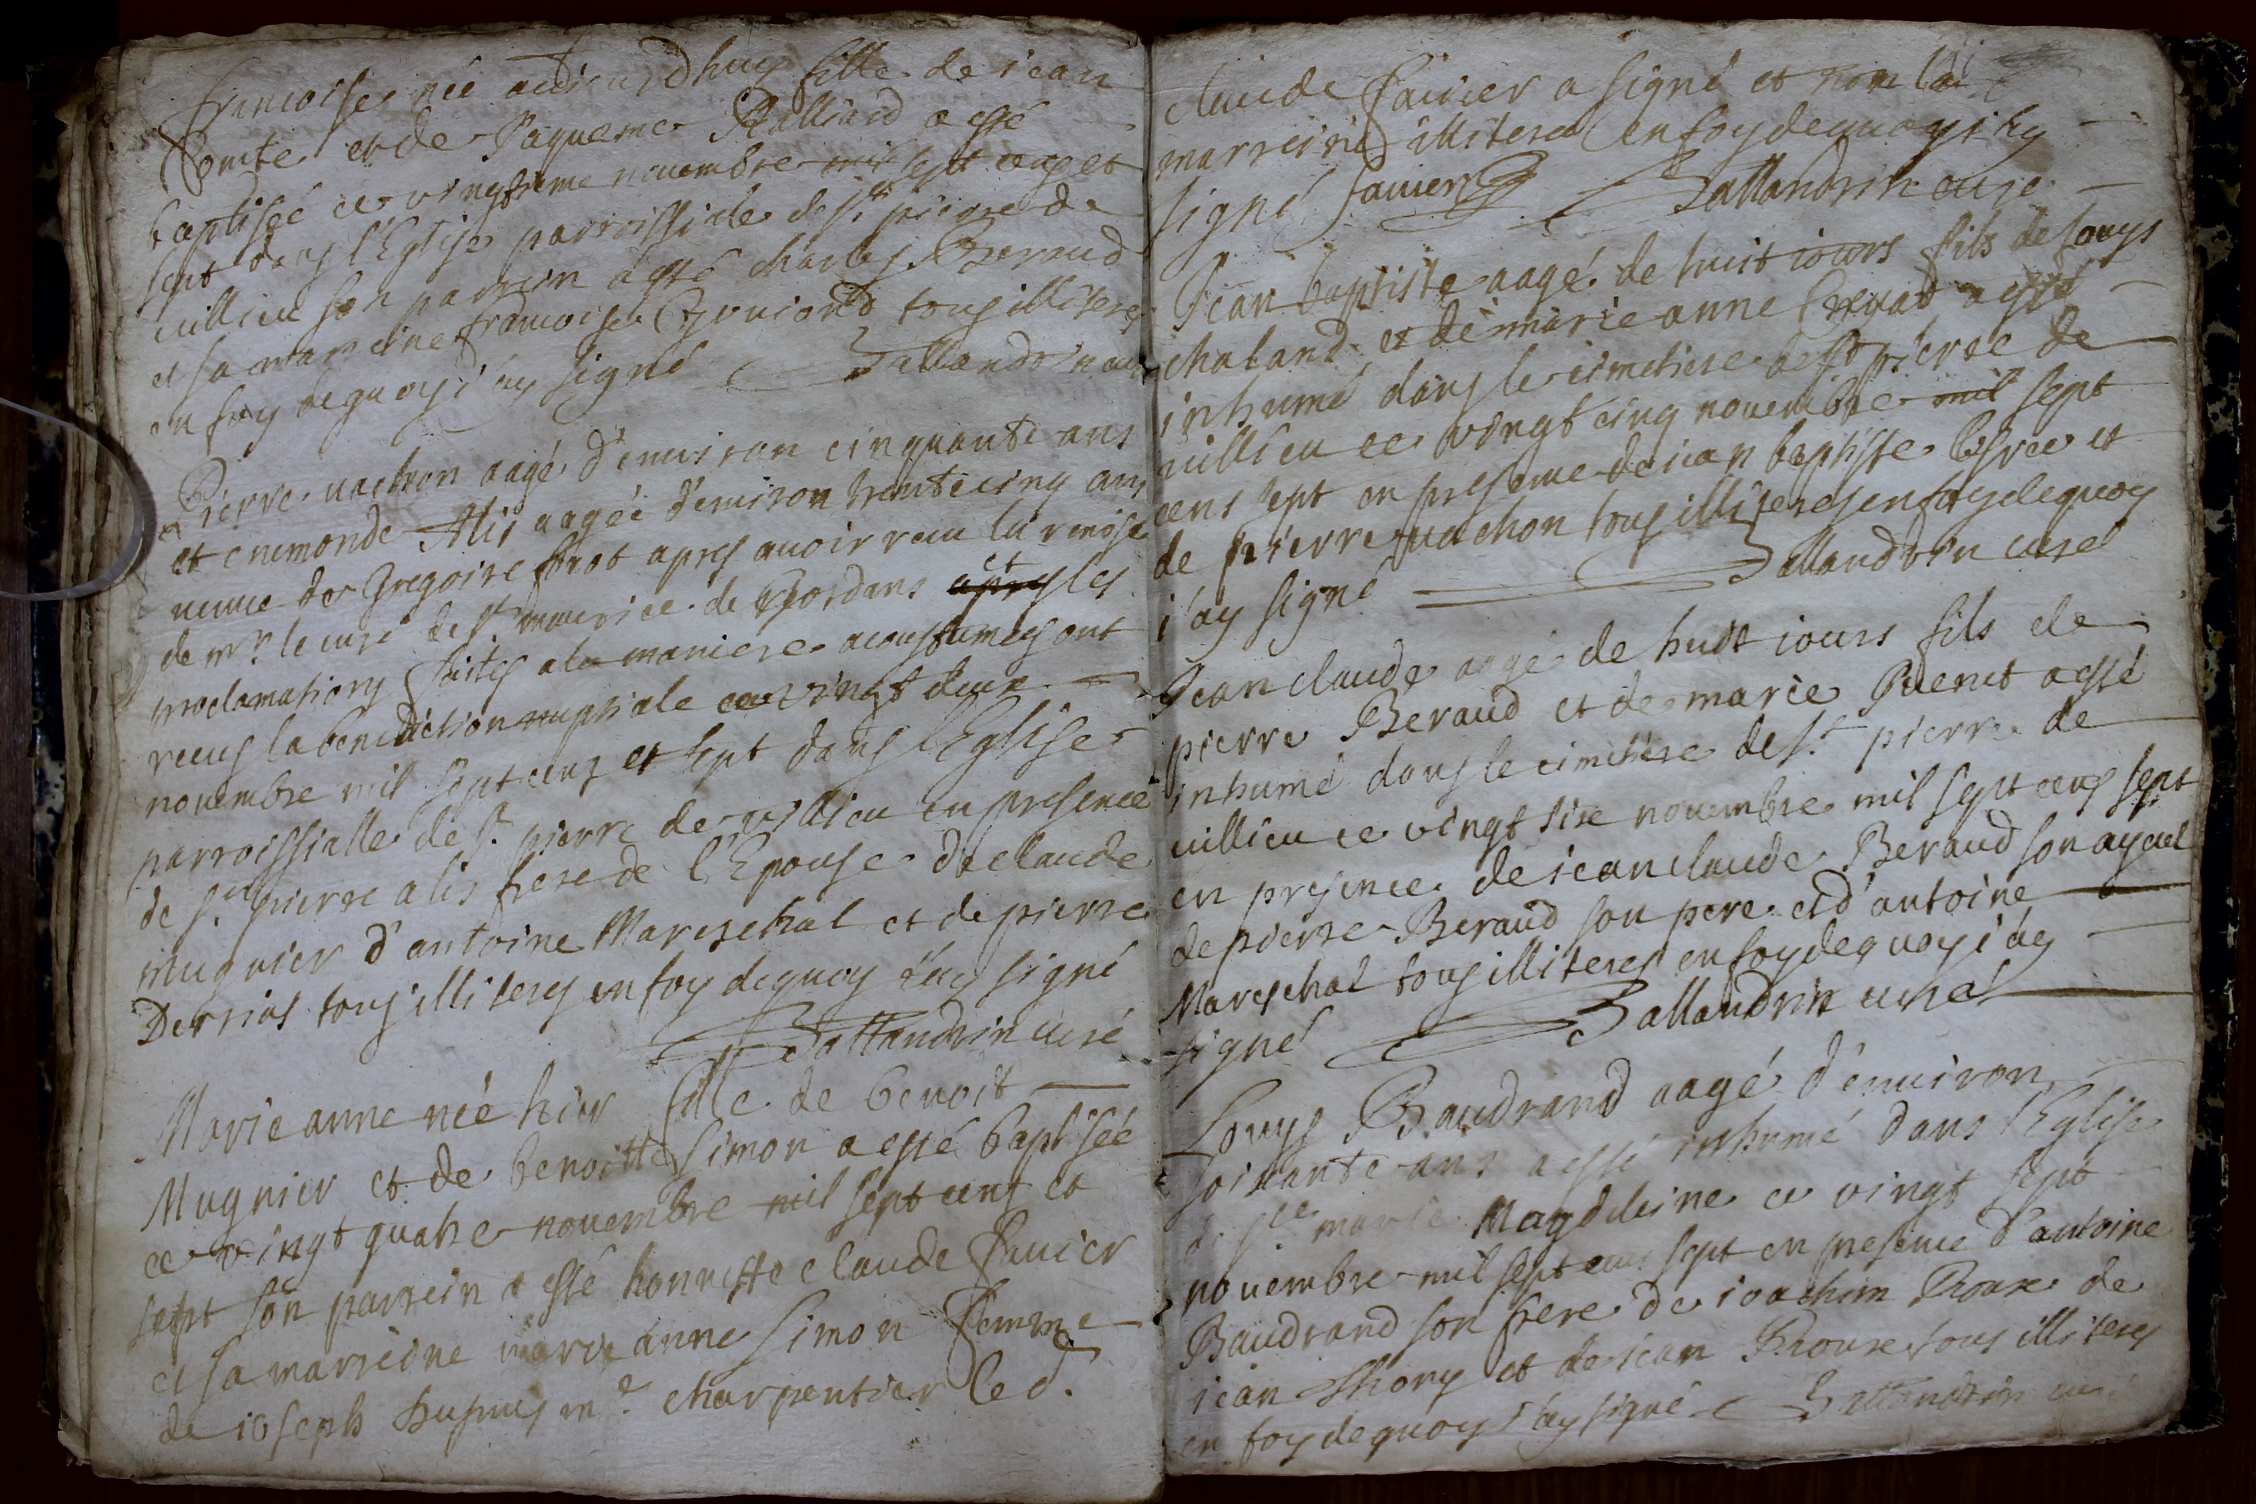 francoise née aujourd'huy fille de jean
Comte et de Paqueme Ralliard a esté
baptiseé ce vingtieme novembre mil sept cens et
sept dans l'Eglise parroissiale de st pierre de
villieu son parrein a esté charles Beraud
et sa marreine francoise tous illiteres
en foy de quoy i'ay signé Ballandrin curé
Pierre vachon aagé d'environ cinquante ans
et enemonde Alis aageé d'environ trente cinq ans
veuve de gregoire frot apres avoir receu la remise
de mr. le curé de st maurice de Gordans et les
proclamations faites a la maniere acoustumeés ont
receus la benediction nuptiale ce vingt deux
novembre mil sept cens et sept dans l'Eglise
parroissialle de st. pierre de villieu en presence
de sr. pierre alis frere de l'Epouse de claude
mugnier d'antoine Mareschal et de pierre
Derrias tous illiteres en foy de quoy i'ay signé
Ballandrin curé
Marie anne née hier fille de benoit
Mugnier et de benoitte Simon a esté baptiseé
ce vingt quatre novembre mil sept cens et
sept son parrein a esté honneste claude favier
et sa marreine marie anne simon femme
de ioseph dupuis me. charpentier led.
claude favier a signé et non la
marreine illiteré en foy de quoy i'ay
signé favier Ballandrin curé
Jean baptiste aagé de huit iours fils de louys
chaland et de marie anne a esté
inhumé dans le cimetiere de st pierre de
villieu ce vingt cinq novembre mil sept
cens sept en presence de iean baptiste et
de pierre vachon tous illiteres en foy de quoy
i'ay signé Ballandrin curé
Jean claude aagé de huit iours fils de
pierre Beraud et de marie Puenet a esté
inhumé dans le cimetiere de st. pierre de
villieu ce vingt six novembre mil sept cens sept
en presence de iean claude Beraud son ayeul
de pierre Beraud son pere et d'antoine
Mareschal tous illiteres en foy de quoy i'ay
signé Ballandrin curé
Louys Baudrand aagé d'environ
soixante ans a esté inhumé dans l'Eglise
de ste marie Magdeleine ce vingt sept
novembre mil sept cens sept en presence d'antoine
Baudrand son frere de ioachim Roux de
iean thory et de iean Roux tous illiteres
en foy de quoy i'ay signé Ballandrin curé